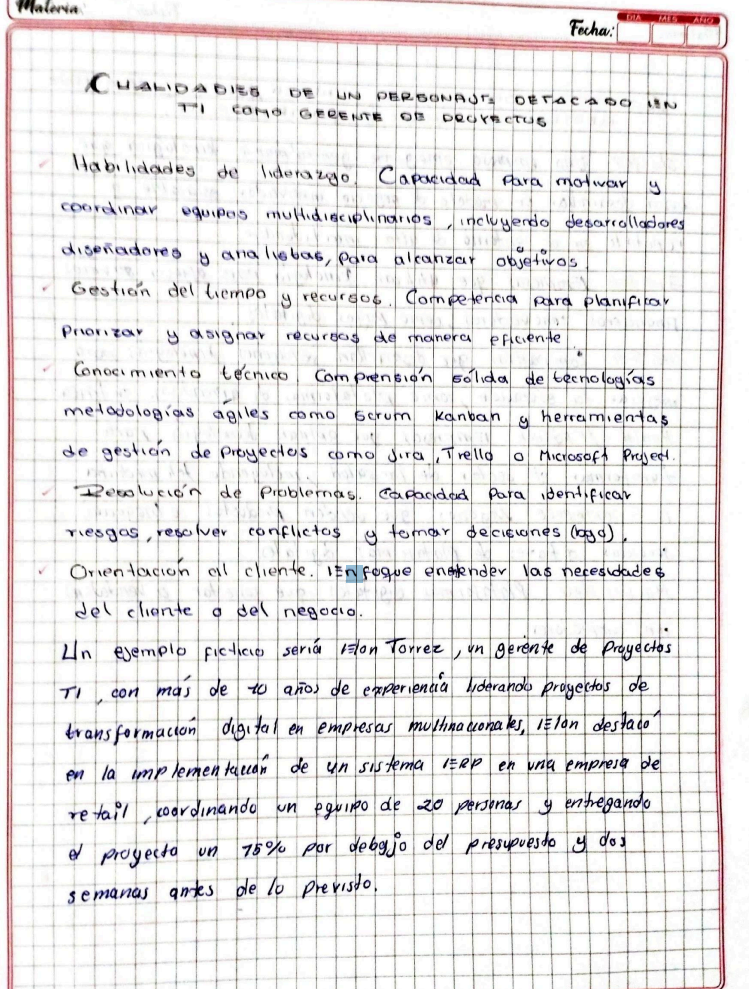 Materia
Fecha:
DIA MES AÑO
CUALIDADES DE UN PERSONAJE DETACADO EN
TI COMO GERENTE DE PROYECTOS
Habilidades de liderazgo. Capacidad para motivar y
coordinar equipos multidisciplinarios, incluyendo desarrolladores
diseñadores y analistas, para alcanzar objetivos
Gestión del tiempo y recursos. Competencia para planificar
priorizar y asignar recursos de manera eficiente
Conocimiento técnico. Comprensión sólida de tecnologías
metodologías ágiles como Scrum Kanban y herramientas
de gestión de proyectos como Jira, Trello o Microsoft Project.
Resolución de problemas. Capacidad para identificar
riesgos, resolver conflictos y tomar decisiones
Orientación al cliente. Enfoque entender las necesidades
del cliente o del negocio.
Un ejemplo ficticio sería Elon Torrez, un gerente de proyectos
TI, con más de 10 años de experiencia liderando proyectos de
transformación digital en empresas multinacionales, Elon destacó
en la implementación de un sistema ERP en una empresa de
retail, coordinando un equipo de 20 personas y entregando
el proyecto un 75% por debajo del presupuesto y dos
semanas antes de lo previsto.